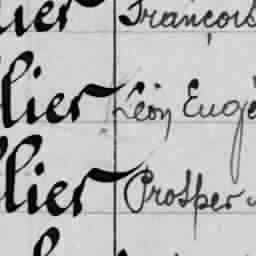 lier François
lier Léon Eugè
lier Prosper